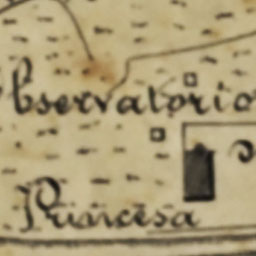 Observatorio
Princesa